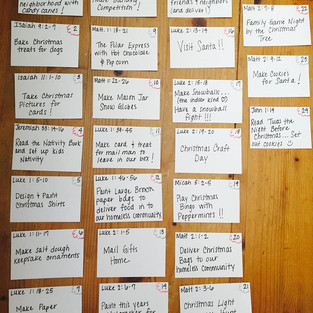 neighborhood with
candy canes!
Isaiah 9:2
2
Bake Christmas
treats for dogs
Isaiah 11:1-10
3
Take Christmas
Pictures for
cards!
Jeremiah 33:14-16
4
Read the Nativity Book
and set up kids
Nativity
Luke 1:5-10
5
Design + Paint
Christmas Shirts
Luke 1:11-17
6
Make salt dough
keepsake ornaments
Luke 1:18-25
7
Make Paper
Competition!
Matt 1:18-21
9
The Polar Express
with Hot Chocolate
& Popcorn
Matt 1:22-26
10
Make Mason Jar
Snow Globes
Luke 1:39-45
11
Make card & treat
for mail man to
leave in our box!
Luke 1:46-56
12
Paint Large Brown
paper bags to
deliver food in to
our homeless community
Luke 2:1-5
13
Mail Gifts
Home
Luke 2:6-7
14
Paint this years
friends & neighbors
and deliver!
16
Visit Santa!!
Luke 2:15-18
17
Make Snowballs...
(the indoor kind)
Have a snowball
fight!!!
Luke 2:19-20
18
Christmas Craft
Day
Micah 5:2-5
19
Play Christmas
Bingo with
Peppermints!!
Matt 2:1-2
20
Deliver Christmas
Bags to our
homeless Community
Matt 2:3-6
21
Christmas Light
Matt 2:7-8
22
Family Game Night
by the Christmas
Tree
23
Make Cookies
for Santa!
John 1:14
24
Read 'Twas the
Night Before
Christmas... Set
out cookies